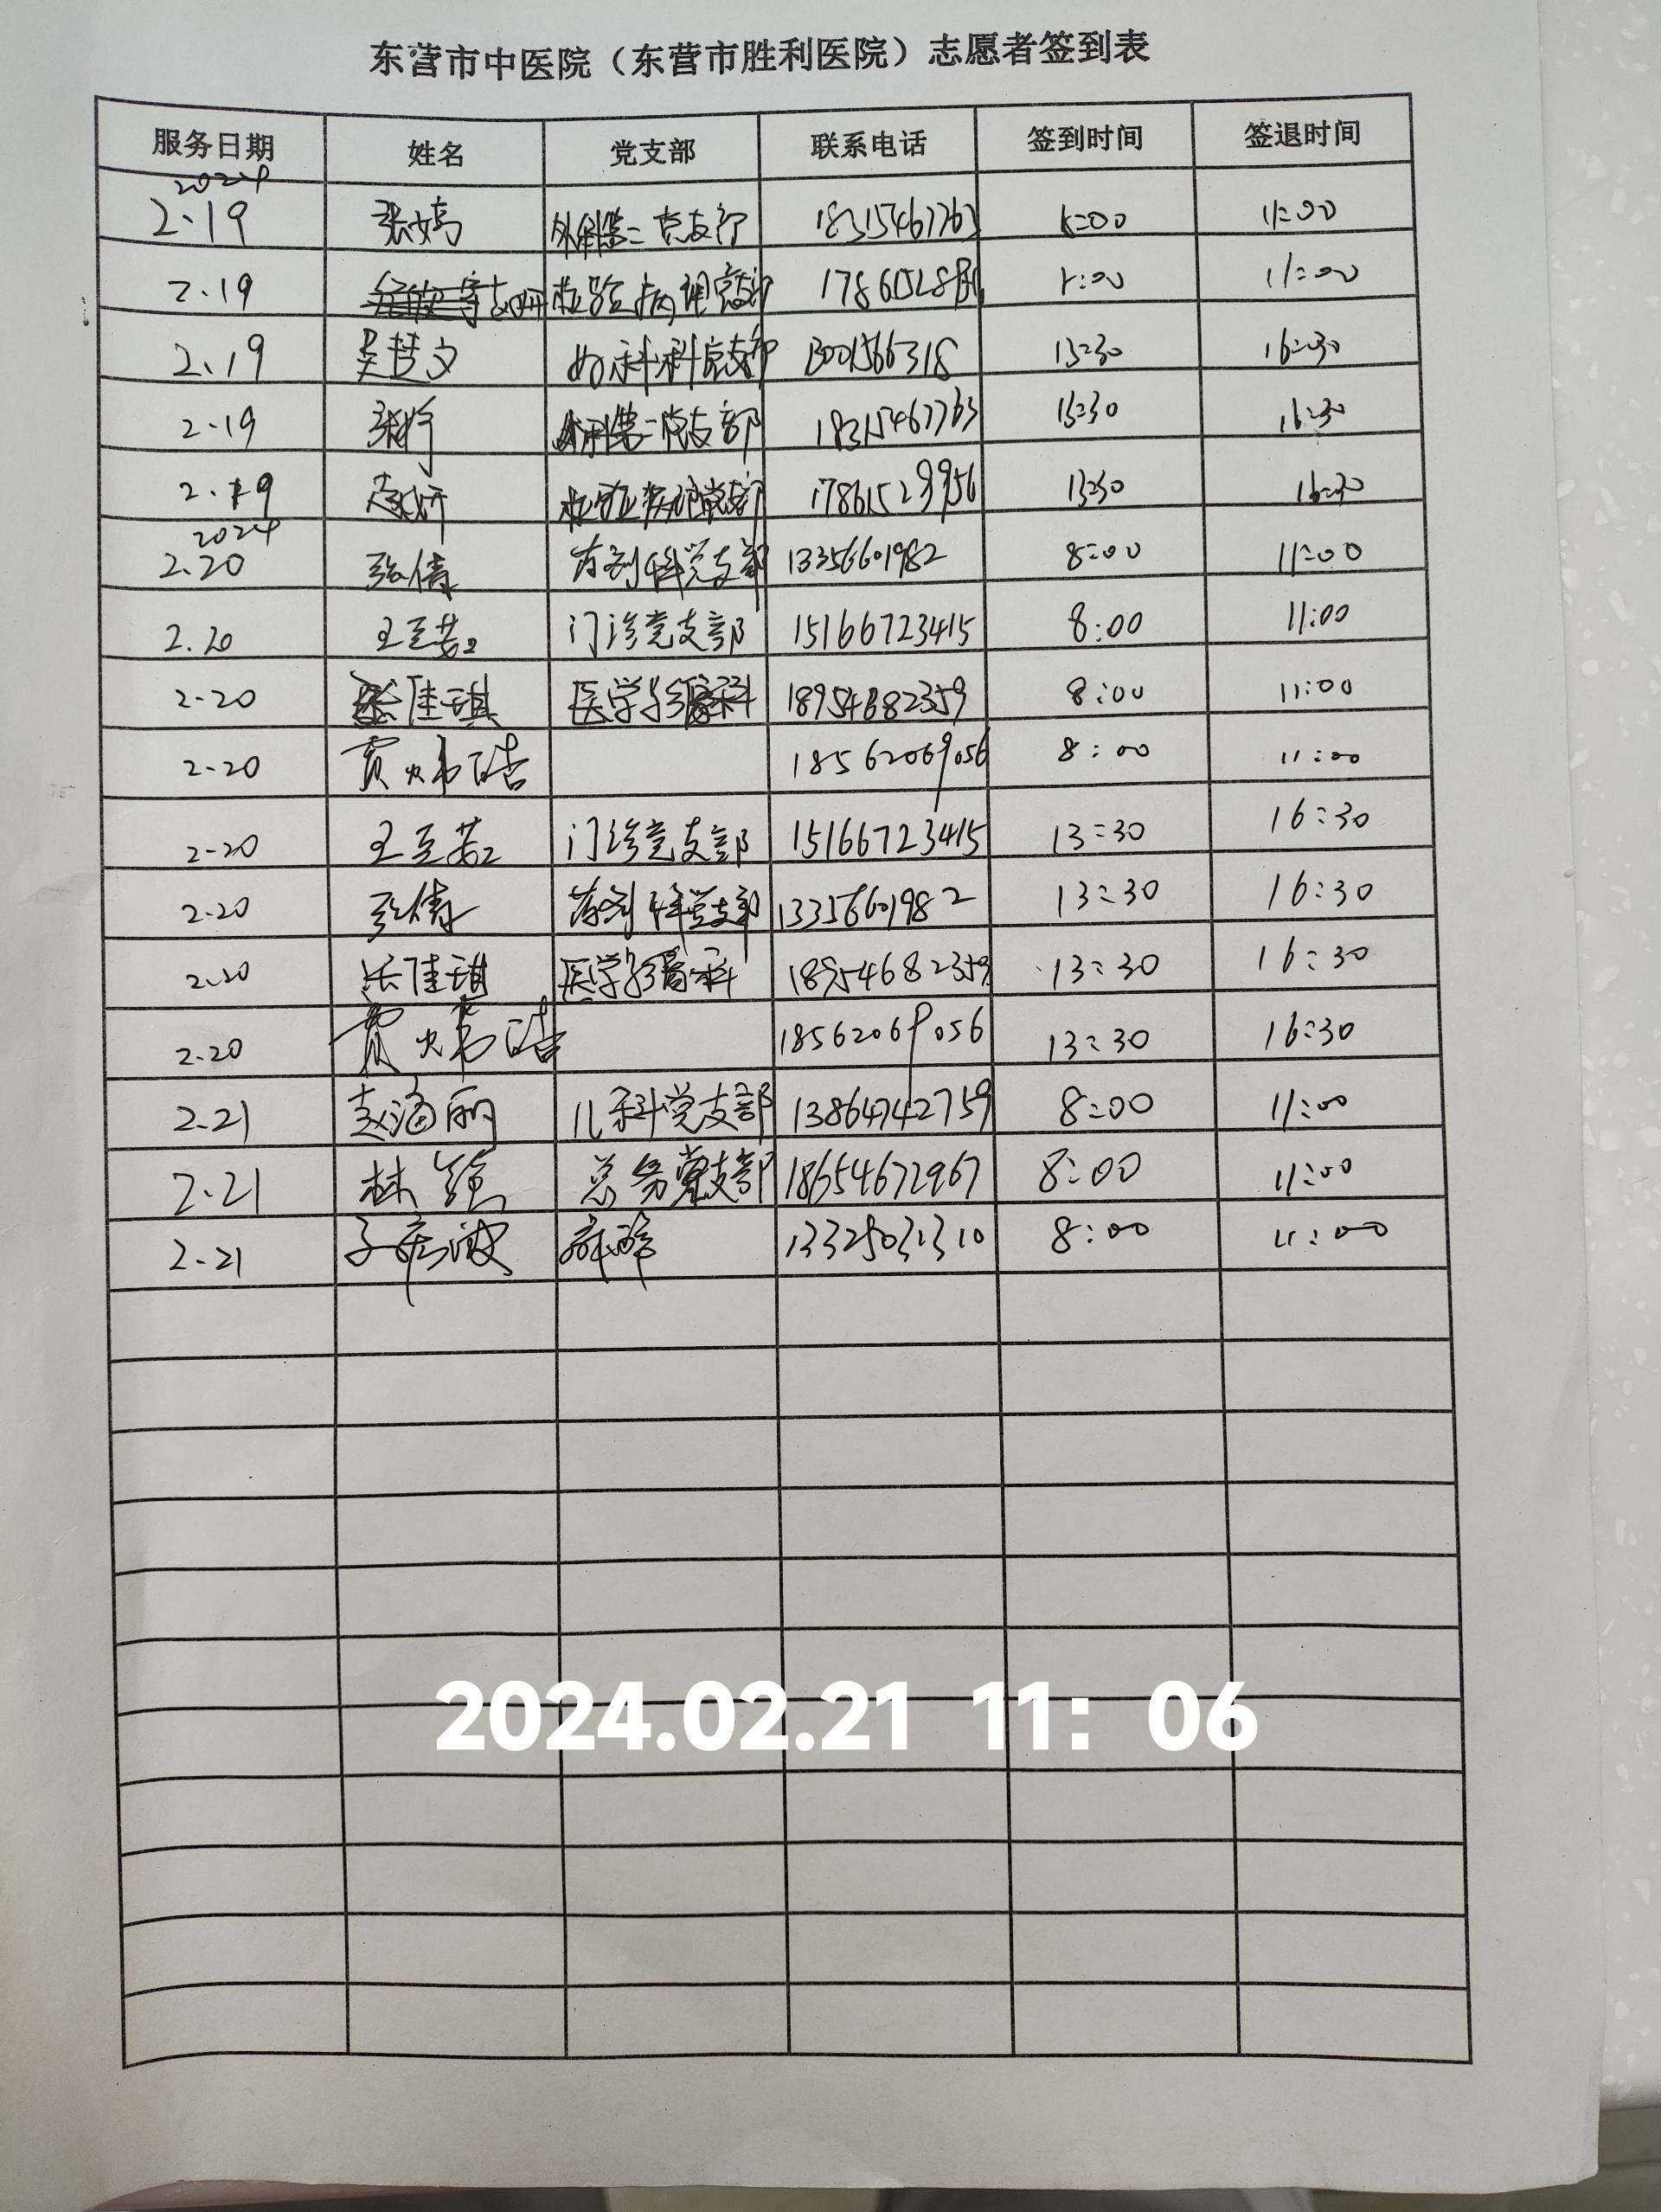 东营市中医院（东营市胜利医院）志愿者签到表
服务日期 姓名 党支部 联系电话 签到时间 签退时间
2024
2.19 张婷 外科第二党支部 18315467763 8:00 11:00
2.19 检验病理党支部 11:00
2.19 吴慧文 妇科党支部 13:30 16:30
2.19 张婷 外科第二党支部 18315467763 13:30 16:30
2.19 检验病理党支部 13:30 16:30
2024
2.20 张倩 药剂科党支部 13356601982 8:00 11:00
2.20 门诊党支部 15166723415 8:00 11:00
2-20 佳琪 医学影像科 18954682359 8:00 11:00
2-20 贾 18562069056 8:00 11:00
2-20 门诊党支部 15166723415 13:30 16:30
2-20 张倩 药剂科党支部 13356601982 13:30 16:30
2-20 佳琪 医学影像科 18954682359 13:30 16:30
2-20 贾 18562069056 13:30 16:30
2-21 赵海丽 儿科党支部 13864742759 8:00 11:00
2-21 林强 总务党支部 18654672967 8:00 11:00
2-21 麻醉 8:00 11:00
2024.02.21 11：06